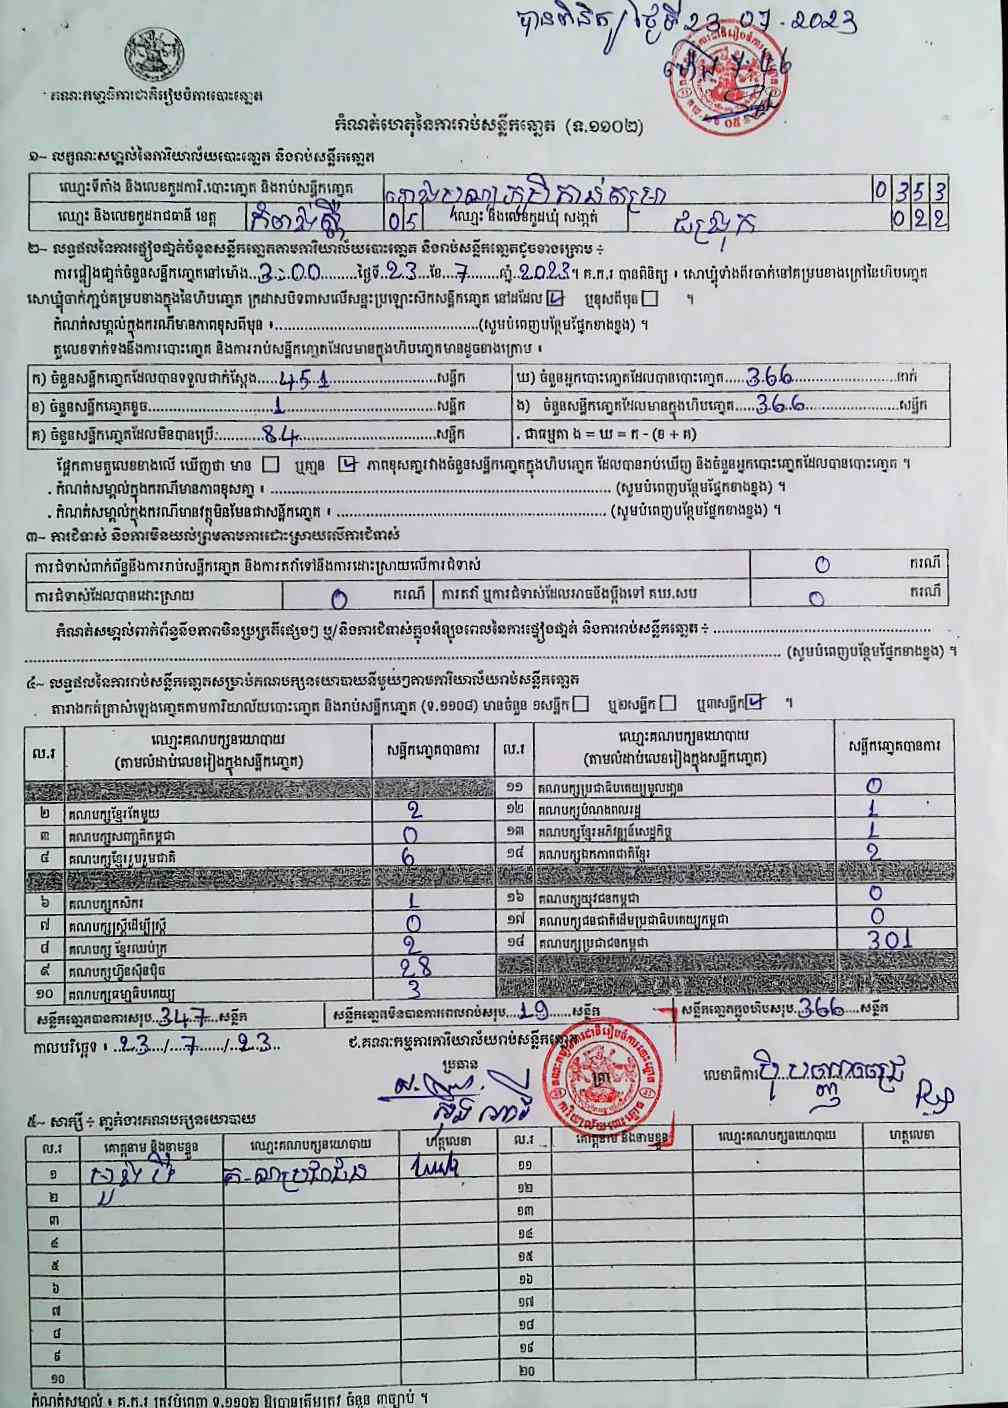 បានពិនិត្យ ថ្ងៃទី 23.07.2023
គណៈកម្មាធិការជាតិរៀបចំការបោះឆ្នោត
កំណត់ហេតុនៃការរាប់សន្លឹកឆ្នោត (ទ.១១០២)
១- លក្ខណៈសម្គាល់នៃការិយាល័យបោះឆ្នោត និងរាប់សន្លឹកឆ្នោត
ឈ្មោះទីតាំង និងលេខកូដការិ.បោះឆ្នោត និងរាប់សន្លឹកឆ្នោត 0353
ឈ្មោះ និងលេខកូដរាជធានី ខេត្ត កំពង់ស្ពឺ 05 ឈ្មោះ និងលេខកូដឃុំ សង្កាត់ ជង្រុក 022
២- លទ្ធផលនៃការផ្ទៀងផ្ទាត់ចំនួនសន្លឹកឆ្នោតតាមការិយាល័យបោះឆ្នោត និងរាប់សន្លឹកឆ្នោតដូចខាងក្រោម ÷
ការផ្ទៀងផ្ទាត់ចំនួនសន្លឹកឆ្នោតនៅម៉ោង 3:00 ថ្ងៃទី 23 ខែ 7 ឆ្នាំ 2023។ គ.ក.រ បានពិនិត្យ ៖ សោឃ្លុំទាំងពីរចាក់នៅគម្របខាងក្រៅនៃហិបឆ្នោត
សោឃ្លុំចាក់ភ្ជាប់គម្របខាងក្នុងនៃហិបឆ្នោត ក្រដាសបិទពាសលើសន្ទះប្រឡោះសិកសន្លឹកឆ្នោត នៅដដែល ☑ ឬខុសពីមុន ☐ ។
កំណត់សម្គាល់ក្នុងករណីមានភាពខុសពីមុន ៖ (សូមបំពេញបន្ថែមផ្នែកខាងខ្នង) ។
តួលេខទាក់ទងនឹងការបោះឆ្នោត និងការរាប់សន្លឹកឆ្នោតដែលមានក្នុងហិបឆ្នោតមានដូចខាងក្រោម ៖
ក) ចំនួនសន្លឹកឆ្នោតដែលបានទទួលជាក់ស្តែង 451 សន្លឹក ឃ) ចំនួនអ្នកបោះឆ្នោតដែលបានបោះឆ្នោត 366 នាក់
ខ) ចំនួនសន្លឹកឆ្នោតខូច 1 សន្លឹក ង) ចំនួនសន្លឹកឆ្នោតដែលមានក្នុងហិបឆ្នោត 366 សន្លឹក
គ) ចំនួនសន្លឹកឆ្នោតដែលមិនបានប្រើ: 84 សន្លឹក . ជាធម្មតា ង = ឃ = ក - (ខ + គ)
ផ្អែកតាមតួលេខខាងលើ ឃើញថា មាន ☐ ឬគ្មាន ☑ ភាពខុសគ្នារវាងចំនួនសន្លឹកឆ្នោតក្នុងហិបឆ្នោត ដែលបានរាប់ឃើញ និងចំនួនអ្នកបោះឆ្នោតដែលបានបោះឆ្នោត ។
. កំណត់សម្គាល់ក្នុងករណីមានភាពខុសគ្នា ៖ (សូមបំពេញបន្ថែមផ្នែកខាងខ្នង) ។
. កំណត់សម្គាល់ក្នុងករណីមានវត្ថុមិនមែនជាសន្លឹកឆ្នោត ៖ (សូមបំពេញបន្ថែមផ្នែកខាងខ្នង) ។
៣- ការជំទាស់ និងការមិនយល់ព្រមតាមការដោះស្រាយលើការជំទាស់
ការជំទាស់ពាក់ព័ន្ធនឹងការរាប់សន្លឹកឆ្នោត និងការតវ៉ាទៅនឹងការដោះស្រាយលើការជំទាស់ 0 ករណី
ការជំទាស់ដែលបានដោះស្រាយ 0 ករណី ការតវ៉ា ឬការជំទាស់ដែលអាចនឹងប្តឹងទៅ គឃ.សប 0 ករណី
កំណត់សម្គាល់ពាក់ព័ន្ធនឹងភាពមិនប្រក្រតីផ្សេងៗ ឬ/និងការជំទាស់ក្នុងអំឡុងពេលនៃការផ្ទៀងផ្ទាត់ និងការរាប់សន្លឹកឆ្នោត ÷
(សូមបំពេញបន្ថែមផ្នែកខាងខ្នង) ។
៤- លទ្ធផលនៃការរាប់សន្លឹកឆ្នោតសម្រាប់គណបក្សនយោបាយនីមួយៗតាមការិយាល័យរាប់សន្លឹកឆ្នោត
តារាងកត់ត្រាសំឡេងឆ្នោតតាមការិយាល័យបោះឆ្នោត និងរាប់សន្លឹកឆ្នោត (ទ.១១០៨) មានចំនួន ១សន្លឹក ☐ ឬ២សន្លឹក ☐ ឬ៣សន្លឹក ☑ ។
ល.រ ឈ្មោះគណបក្សនយោបាយ (តាមលំដាប់លេខរៀងក្នុងសន្លឹកឆ្នោត) សន្លឹកឆ្នោតបានការ ល.រ ឈ្មោះគណបក្សនយោបាយ (តាមលំដាប់លេខរៀងក្នុងសន្លឹកឆ្នោត) សន្លឹកឆ្នោតបានការ
១១ គណបក្សប្រជាធិបតេយ្យមូលដ្ឋាន 0
២ គណបក្សខ្មែរតែមួយ 2 ១២ គណបក្សបំណងពលរដ្ឋ 1
៣ គណបក្សសញ្ជាតិកម្ពុជា 0 ១៣ គណបក្សខ្មែរអភិវឌ្ឍន៍សេដ្ឋកិច្ច 1
៤ គណបក្សខ្មែររួបរួមជាតិ 6 ១៤ គណបក្សឯកភាពជាតិខ្មែរ 2
៦ គណបក្សកសិករ 1 ១៦ គណបក្សយុវជនកម្ពុជា 0
៧ គណបក្សស្ត្រីដើម្បីស្ត្រី 0 ១៧ គណបក្សជនជាតិដើមប្រជាធិបតេយ្យកម្ពុជា 0
៨ គណបក្ស ខ្មែរឈប់ក្រ 2 ១៨ គណបក្សប្រជាជនកម្ពុជា 301
៩ គណបក្សហ៊្វុនស៊ិនប៉ិច 28
១០ គណបក្សធម្មាធិបតេយ្យ 3
សន្លឹកឆ្នោតបានការសរុប 347 សន្លឹក សន្លឹកឆ្នោតមិនបានការពេលរាប់សរុប 19 សន្លឹក សន្លឹកឆ្នោតក្នុងហិបសរុប 366 សន្លឹក
កាលបរិច្ឆេទ ៖ 23/7/23 ជ.គណៈកម្មការការិយាល័យរាប់សន្លឹកឆ្នោត
ប្រធាន
លេខាធិការ
ត្រា
៥- សាក្សី ÷ ភ្នាក់ងារគណបក្សនយោបាយ
ល.រ គោត្តនាម និងនាមខ្លួន ឈ្មោះគណបក្សនយោបាយ ហត្ថលេខា ល.រ គោត្តនាម និងនាមខ្លួន ឈ្មោះគណបក្សនយោបាយ ហត្ថលេខា
១ ១១
២ ១២
៣ ១៣
៤ ១៤
៥ ១៥
៦ ១៦
៧ ១៧
៨ ១៨
៩ ១៩
១០ ២០
កំណត់សម្គាល់ ៖ គ.ក.រ ត្រូវបំពេញ ទ.១១០២ ឱ្យបានត្រឹមត្រូវ ចំនួន ៣ច្បាប់ ។